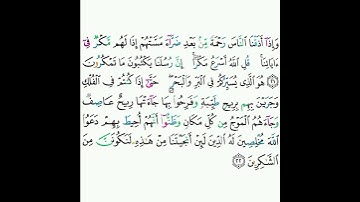 وَإِذَا أَذَقْنَا النَّاسَ رَحْمَةً مِّنْ بَعْدِ ضَرَّاءَ مَسَّتْهُمْ إِذَا لَهُم مَّكْرٌ فِي
ءَايَاتِنَا ۚ قُلِ اللَّهُ أَسْرَعُ مَكْرًا ۚ إِنَّ رُسُلَنَا يَكْتُبُونَ مَا تَمْكُرُونَ
﴿٢١﴾ هُوَ الَّذِي يُسَيِّرُكُمْ فِي الْبَرِّ وَالْبَحْرِ ۖ حَتَّىٰ إِذَا كُنتُمْ فِي الْفُلْكِ
وَجَرَيْنَ بِهِم بِرِيحٍ طَيِّبَةٍ وَفَرِحُوا بِهَا جَاءَتْهَا رِيحٌ عَاصِفٌ
وَجَاءَهُمُ الْمَوْجُ مِن كُلِّ مَكَانٍ وَظَنُّوا أَنَّهُمْ أُحِيطَ بِهِمْ ۙ دَعَوُا
اللَّهَ مُخْلِصِينَ لَهُ الدِّينَ لَئِنْ أَنجَيْتَنَا مِنْ هَٰذِهِ لَنَكُونَنَّ مِنَ
الشَّاكِرِينَ ﴿٢٢﴾